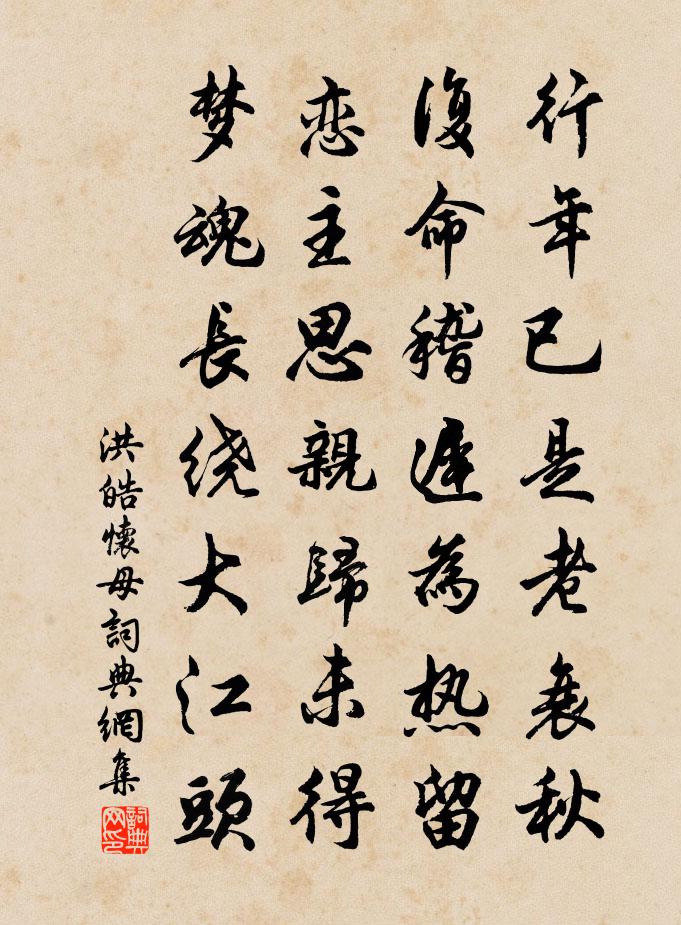 行年已是老衰秋
復命稽遲為热留
恋主思親歸未得
梦魂長绕大江頭
洪皓懷母詞典網集
詞典网印